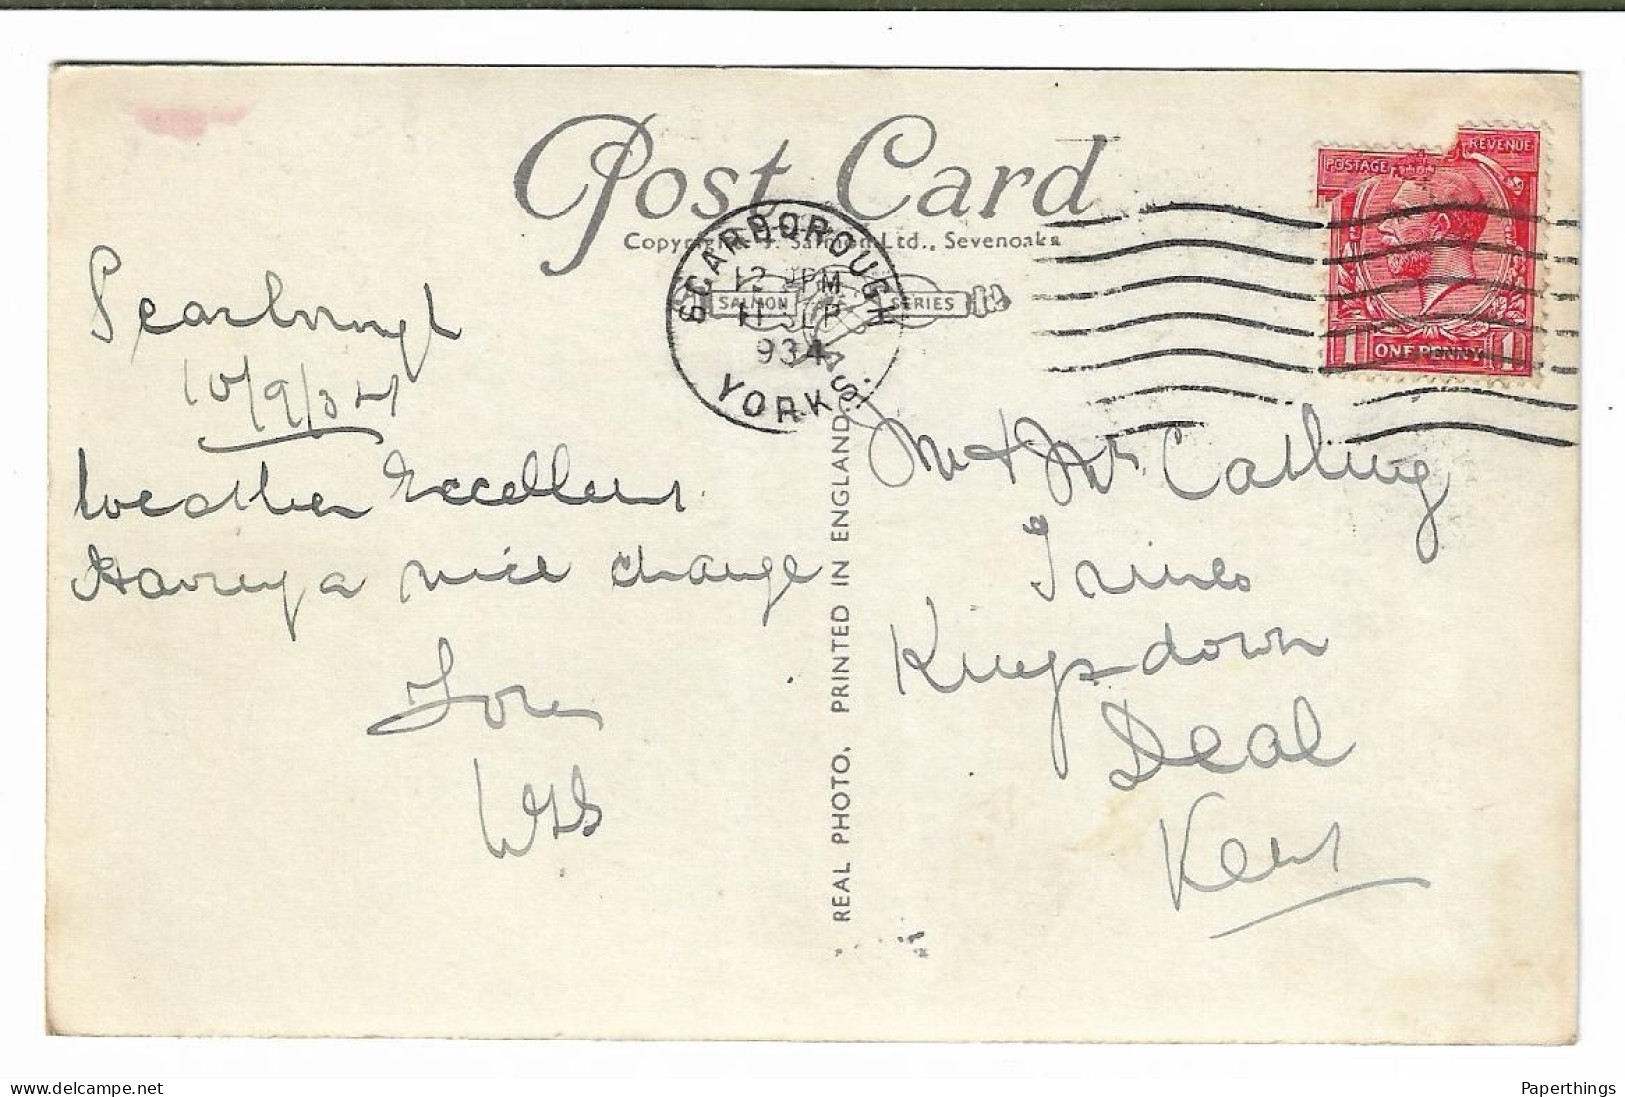 Post Card
Copyright J. Salmon Ltd., Sevenoaks
SALMON SERIES
SCARBOROUGH
12 PM
11 SEP
934
YORKS.
POSTAGE REVENUE
1 ONE PENNY 1
Scarborough
10/9/34
Weather Excellent
Having a nice change
Love
REAL PHOTO. PRINTED IN ENGLAND
Mr & Mrs Catling
Kingsdown
Deal
Kent
Paperthings